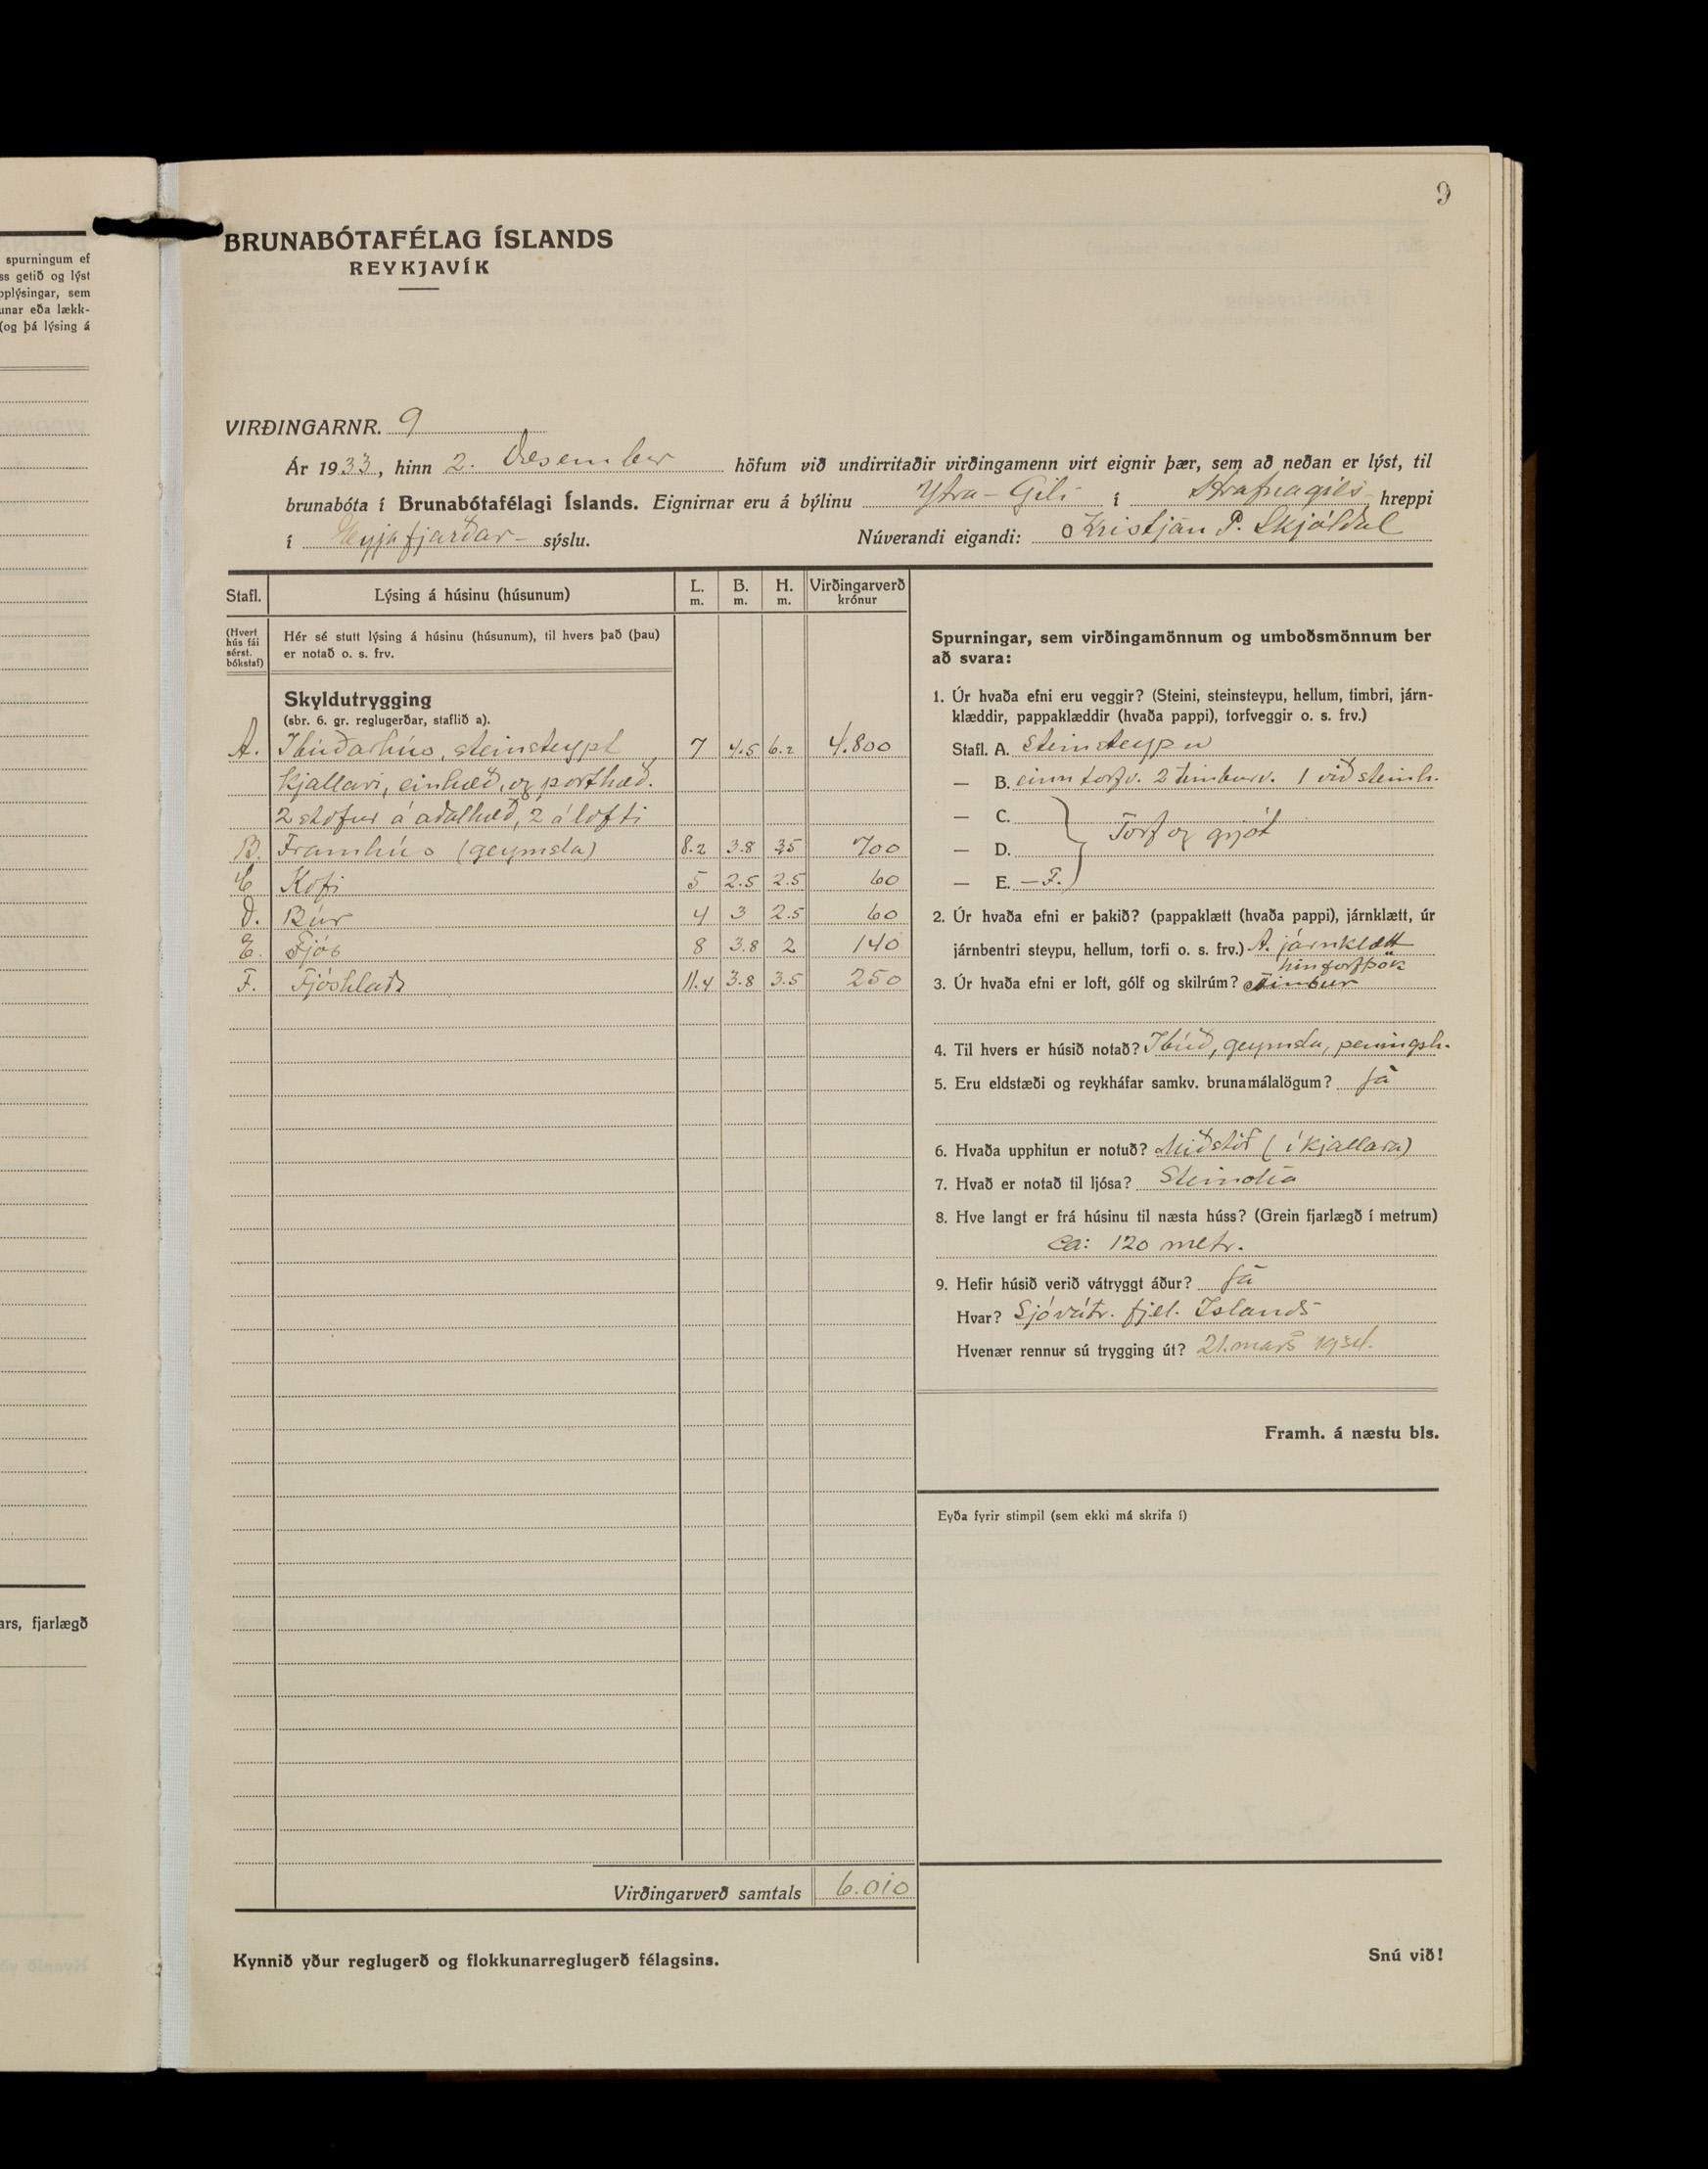 spurningum ef
ss getið og lýst
pplýsingar, sem
unar eða lækk-
(og þá lýsing á
ars, fjarlægð
9
BRUNABÓTAFÉLAG ÍSLANDS
REYKJAVÍK
VIRÐINGARNR. 9
Ár 1933, hinn 2. Desember höfum við undirritaðir virðingamenn virt eignir þær, sem að neðan er lýst, til
brunabóta í Brunabótafélagi Íslands. Eignirnar eru á býlinu Ytra-Gili í Hrafnagils hreppi
í Eyjafjarðar- sýslu. Núverandi eigandi: Kristján P. Skjóldal
Stafl. Lýsing á húsinu (húsunum) L. m. B. m. H. m. Virðingarverð krónur
(Hvert hús fái sérst. bókstaf) Hér sé stutt lýsing á húsinu (húsunum), til hvers það (þau)
er notað o. s. frv.
Skyldutrygging
(sbr. 6. gr. reglugerðar, staflið a).
A. Íbúðarhús, steinsteypt 7 4.5 6.2 4.800
Kjallari, einhæð, og porthæð.
2 stofur á aðalhæð, 2 á lofti
B. Framhús (geymsla) 8.2 3.8 35 700
C Kofi 5 2.5 2.5 60
D. Búr 4 3 2.5 60
E. Fjós 8 3.8 2 140
F. Fjóshlaða 11.4 3.8 3.5 250
Virðingarverð samtals 6.010
Kynnið yður reglugerð og flokkunarreglugerð félagsins.
Spurningar, sem virðingamönnum og umboðsmönnum ber
að svara:
1. Úr hvaða efni eru veggir? (Steini, steinsteypu, hellum, timbri, járn-
klæddir, pappaklæddir (hvaða pappi), torfveggir o. s. frv.)
Stafl. A. Steinsteypu
— B. einn torfv. 2 timburv. 1 við steinh.
— C.
— D. Torf og grjót
— E. – F.
2. Úr hvaða efni er þakið? (pappaklætt (hvaða pappi), járnklætt, úr
járnbentri steypu, hellum, torfi o. s. frv.) A. járnklætt
hin torfþök
3. Úr hvaða efni er loft, gólf og skilrúm? Timbur
4. Til hvers er húsið notað? Íbúð, geymsla, peningsh.
5. Eru eldstæði og reykháfar samkv. brunamálalögum? Já
6. Hvaða upphitun er notuð? Miðstöð (í kjallara)
7. Hvað er notað til ljósa? Steinolía
8. Hve langt er frá húsinu til næsta húss? (Grein fjarlægð í metrum)
Ca: 120 metr.
9. Hefir húsið verið vátryggt áður? Já
Hvar? Sjóvátr. fjel. Islands
Hvenær rennur sú trygging út? 21. mars 1934.
Framh. á næstu bls.
Eyða fyrir stimpil (sem ekki má skrifa í)
Snú við!